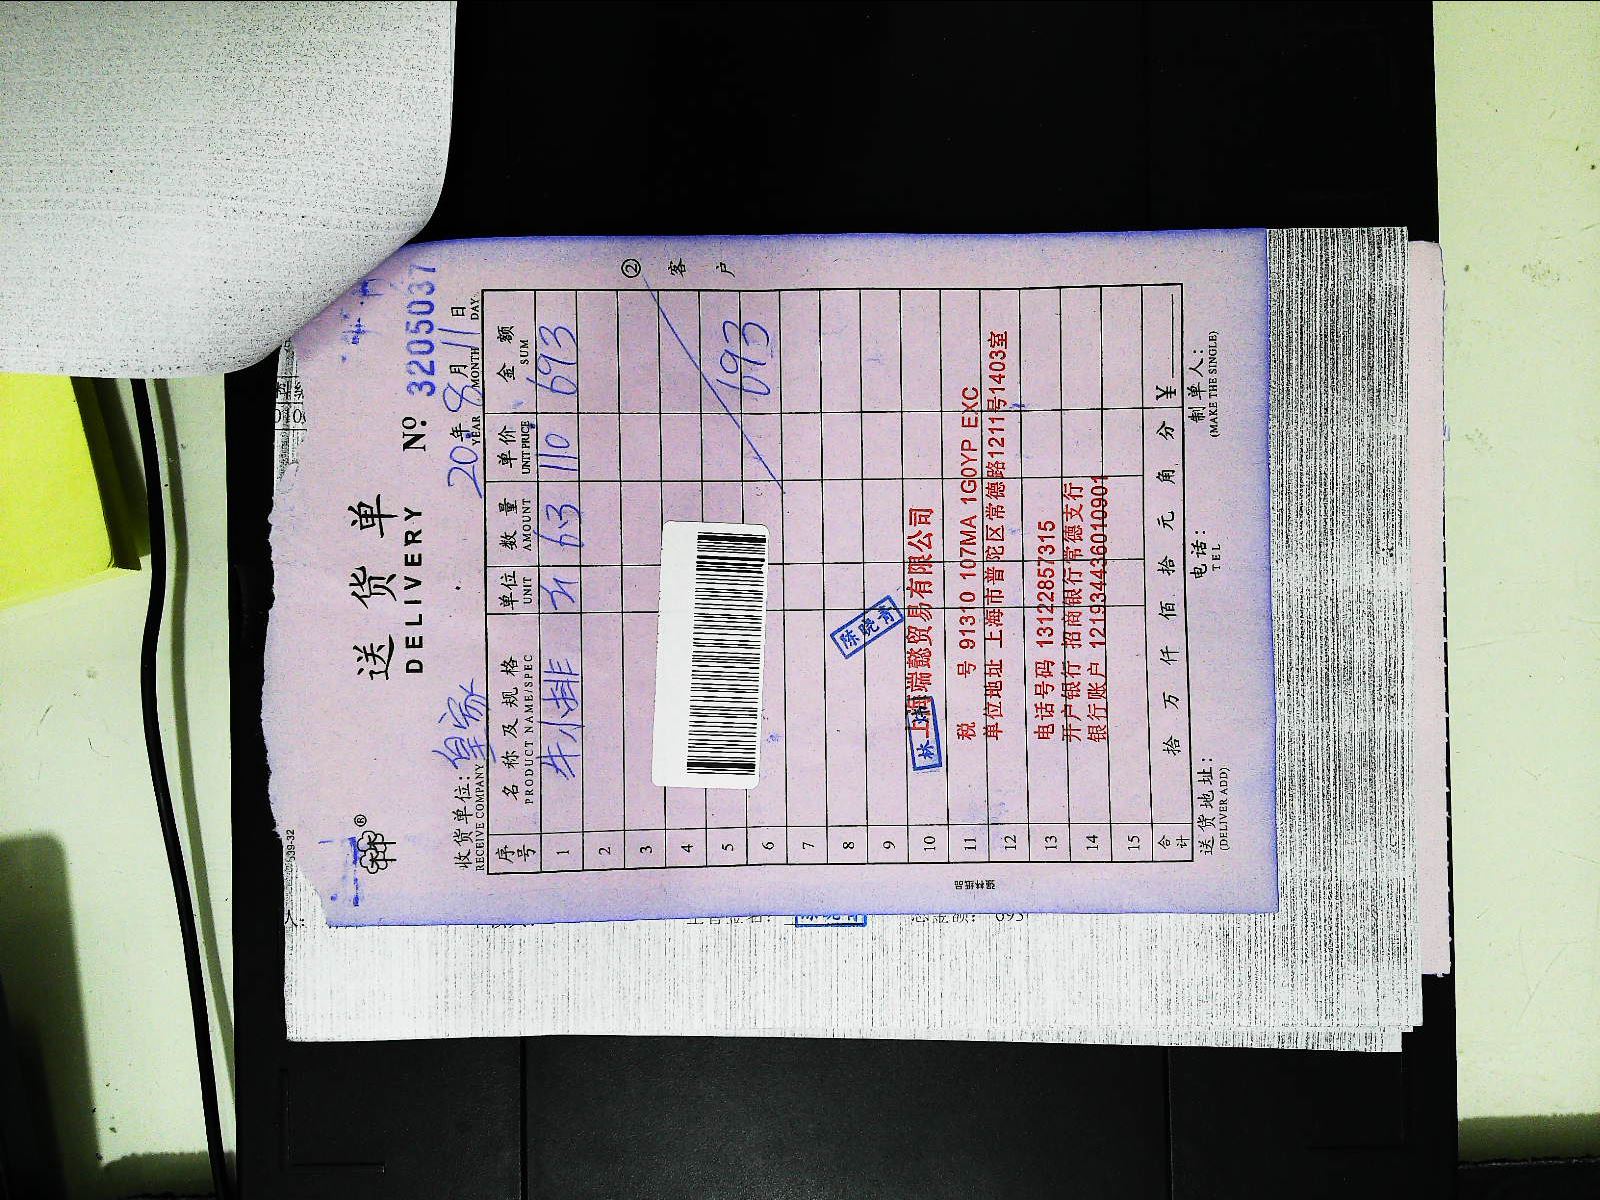 送货单
DELIVERY
№ 3205037
收货单位: 皇家
RECEIVE COMPANY
20年8月11日
YEAR MONTH DAY
序号 名称及规格 单位 数量 单价 金额
PRODUCT NAME/SPEC UNIT AMOUNT UNIT PRICE SUM
1 牛小排 斤 6.3 110 693
2
3
4
5
6 693
7
8
9
10
11
12
13
14
15
② 客户
陈晓青
上海端懿贸易有限公司
税 号 91310 107MA 1G0YP EXC
单位地址 上海市普陀区常德路1211号1403室
电话号码 13122857315
开户银行 招商银行常德支行
银行账户 121934436010901
合计 拾 万 仟 佰 拾 元 角 分 ¥
送货地址: 电话: 制单人:
(DELIVER ADD) TEL (MAKE THE SINGLE)